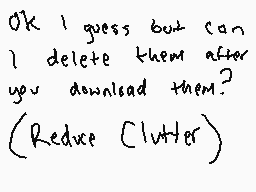 Ok I guess but can
I delete them after
you download them?
(Reduce Clutter)